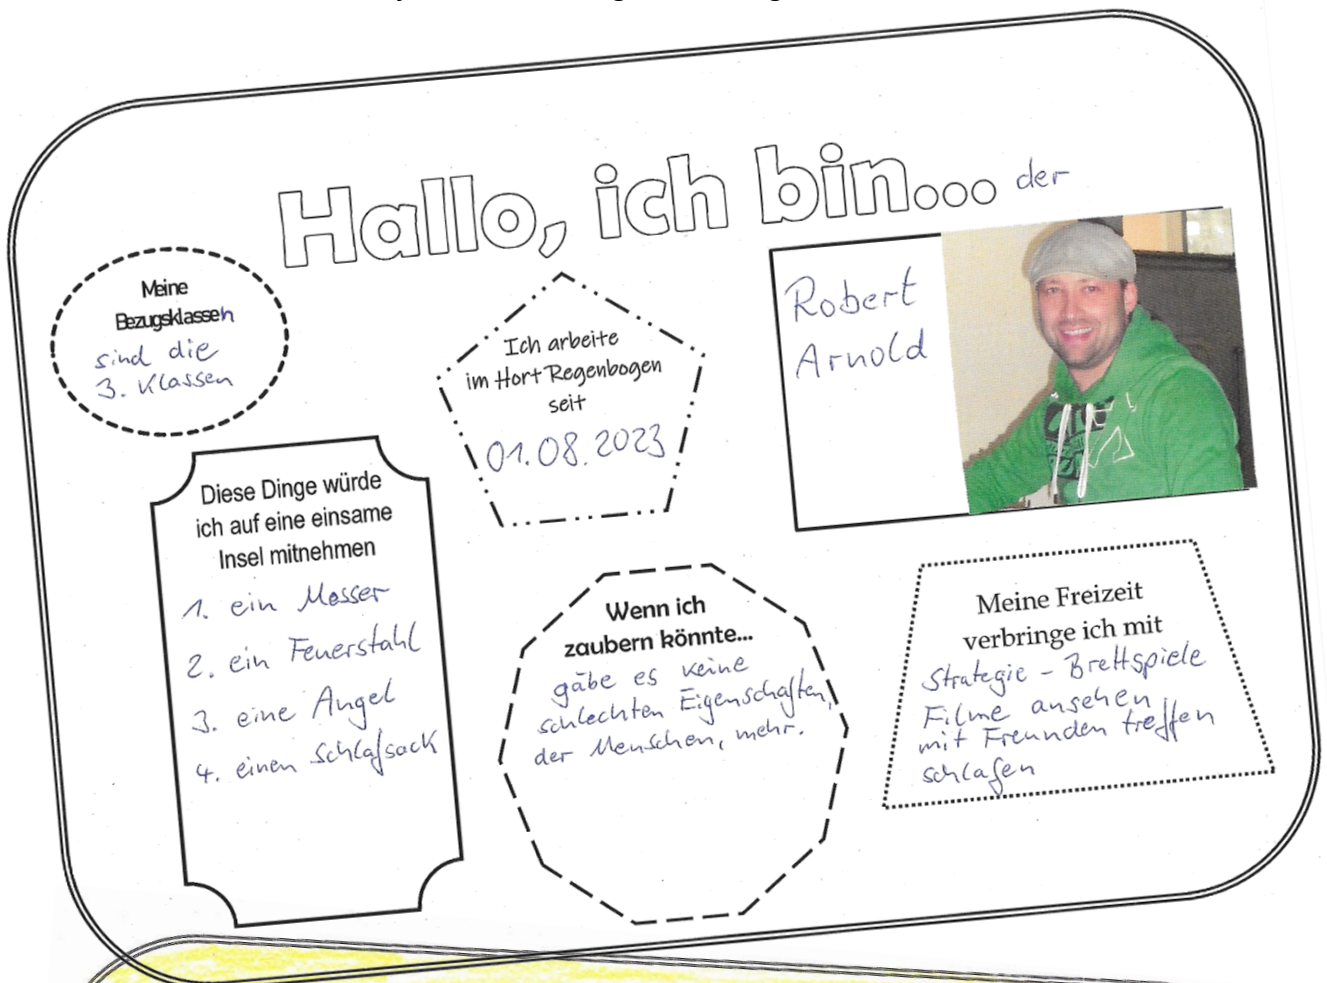 Hallo, ich bin... der
Robert
Arnold
Meine
Bezugsklassen
sind die
3. Klassen
Ich arbeite
im Hort Regenbogen
seit
01.08.2023
Diese Dinge würde
ich auf eine einsame
Insel mitnehmen
1. ein Messer
2. ein Feuerstahl
3. eine Angel
4. einen Schlafsack
Wenn ich
zaubern könnte...
gäbe es keine
schlechten Eigenschaften,
der Menschen, mehr.
Meine Freizeit
verbringe ich mit
Strategie - Brettspiele
Filme ansehen
mit Freunden treffen
schlafen